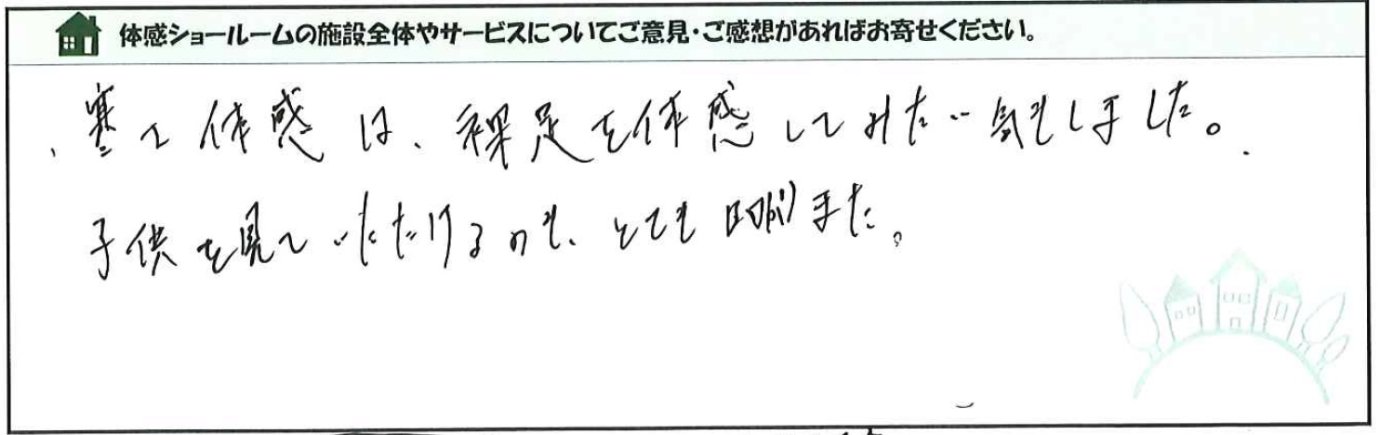 体感ショールームの施設全体やサービスについてご意見・ご感想があればお寄せください。
寒い体感は、裸足を体感してみたい気もしました。
子供を見ていただけるのも、とても助かりました。